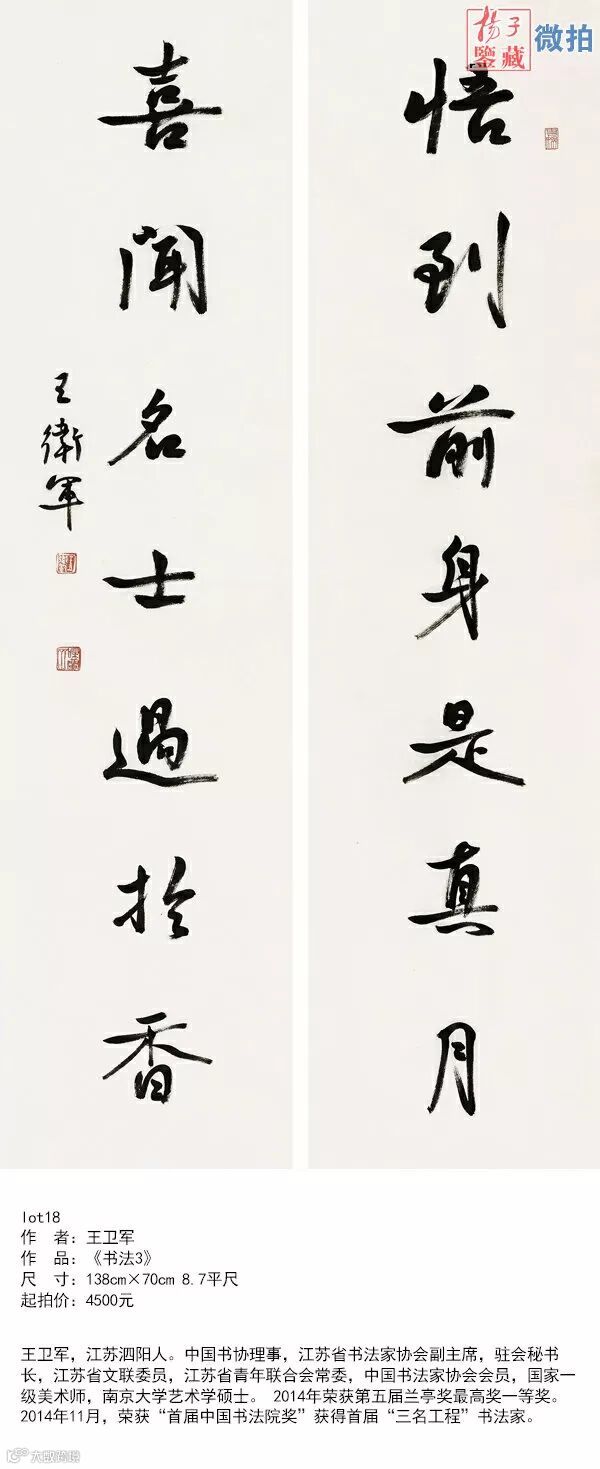 揚子
鑒藏
微拍
悟到前身是真月
喜闻名士過於香
王衛軍
lot18
作 者：王卫军
作 品：《书法3》
尺 寸：138cm×70cm 8.7平尺
起拍价：4500元
王卫军，江苏泗阳人。中国书协理事，江苏省书法家协会副主席，驻会秘书
长，江苏省文联委员，江苏省青年联合会常委，中国书法家协会会员，国家一
级美术师，南京大学艺术学硕士。 2014年荣获第五届兰亭奖最高奖一等奖。
2014年11月，荣获“首届中国书法院奖”获得首届“三名工程”书法家。
大欧跨境